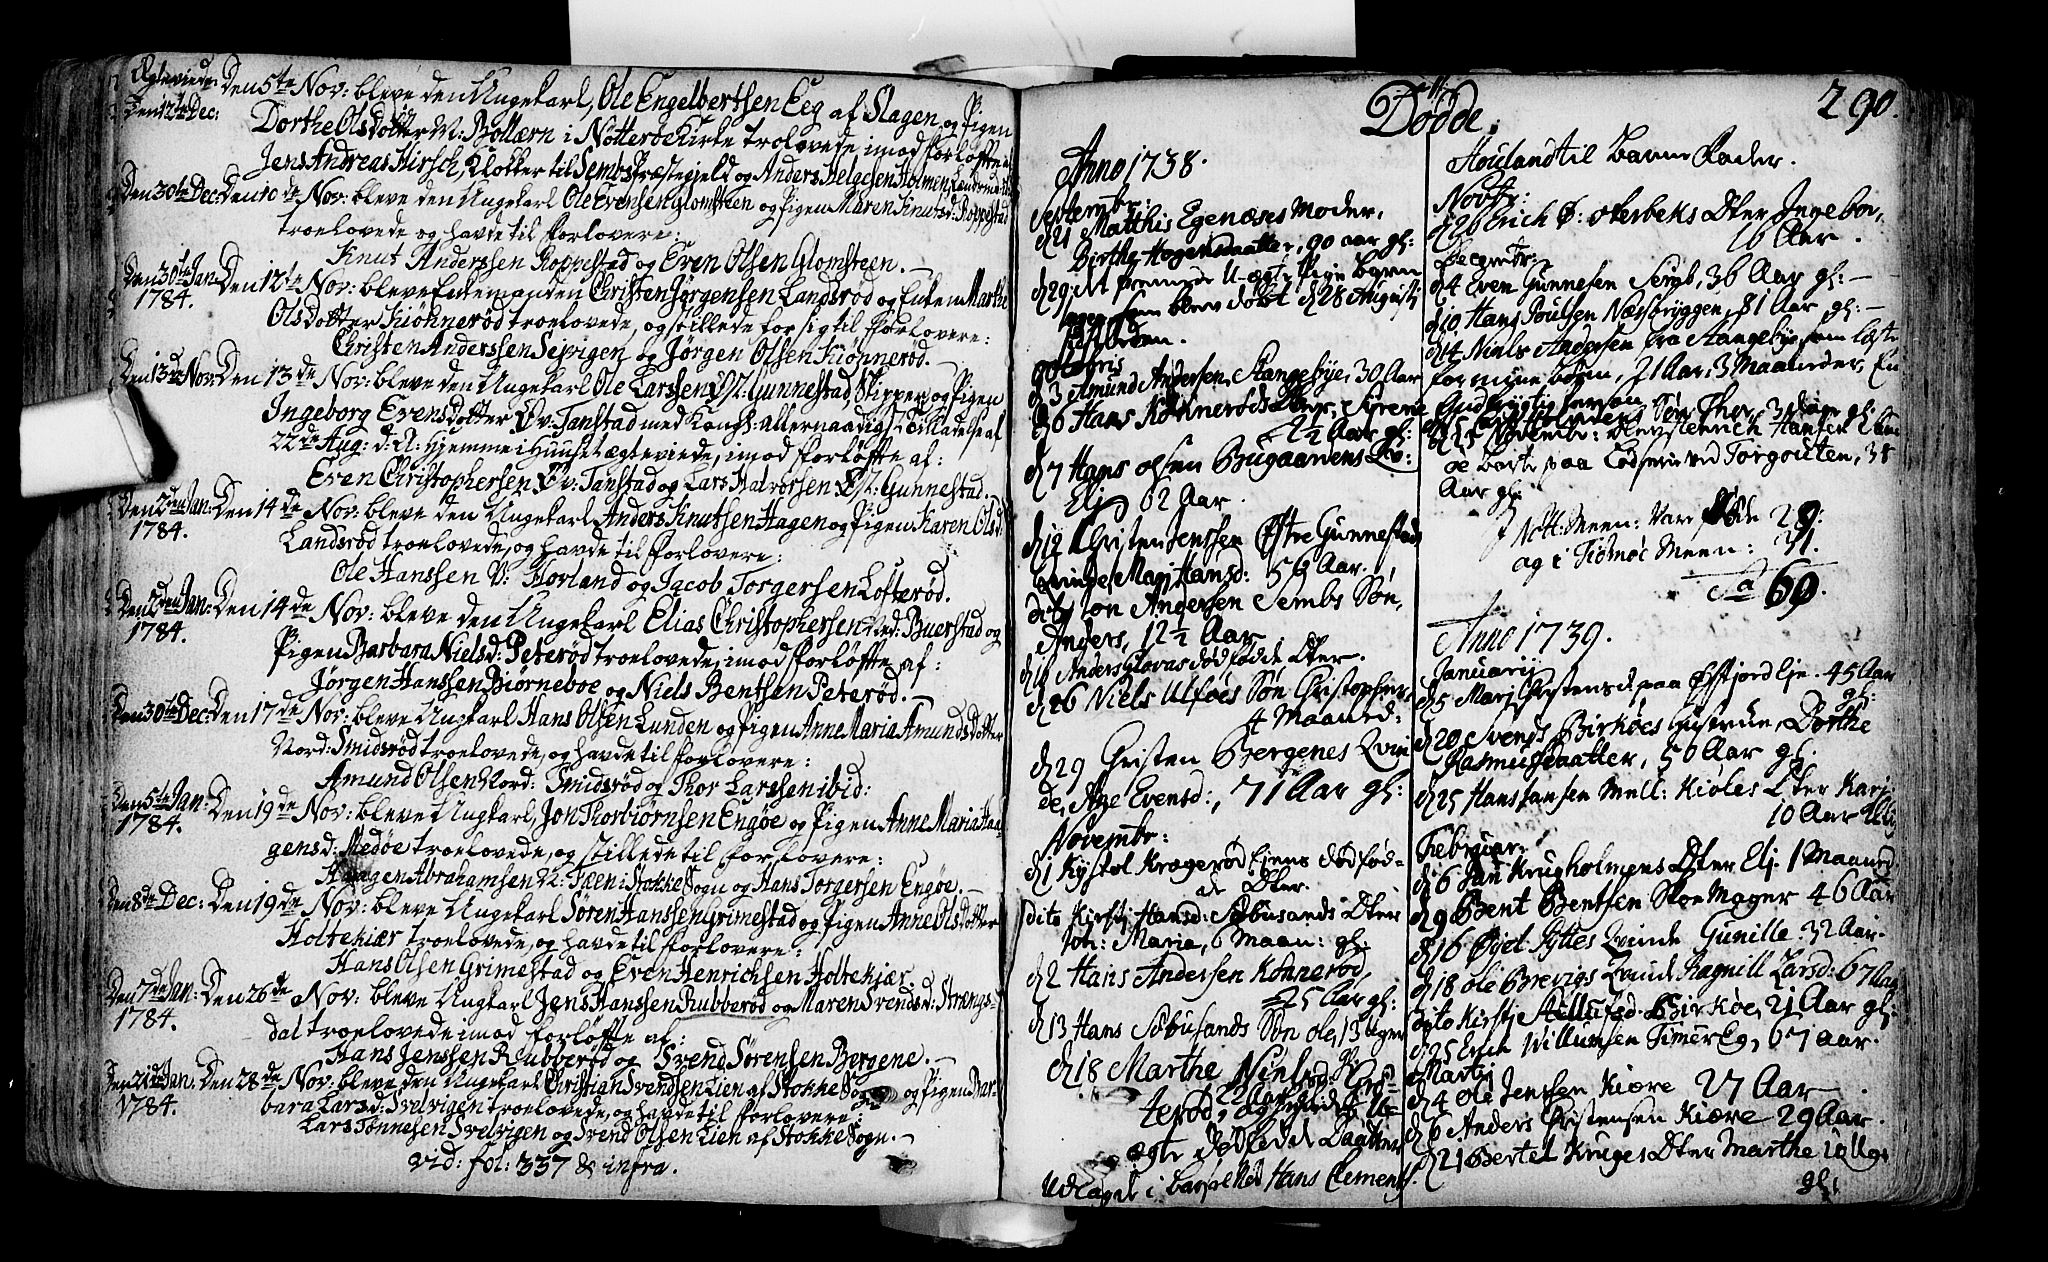 Ægteviede: Den 5te Nov: bleve den Ungekarl, Ole Engelbertsen Eeg af Slagen, og Pigen
Den 12te Dec:
Dorthe Olsdotter V: Bollærn i Nötteröe Kirke trolovede imod forløfte af
Jens Andreas Hirsch, Klokker til Sembs Præstegield og Anders Helgesen Holmen
Den 30te Dec: Den 10de Nov: bleve den Ungekarl Ole Evensen Glomsteen og Pigen Maren Knutsd: Roppestad
troelovede og havde til forlovere:
Knut Anderssen Roppestad og Even Olsen Glomsteen.
Den 30te Jan: Den 12te Nov: bleve Enkemanden Christen Jørgensen Landsrød og Enken Marthe
1784.
Olsdotter Kiønnerød troelovede, og stillede for sig til forlovere:
Christen Anderssen Sevrigen og Jørgen Olsen Kiønnerød.
Den 13de Nov: Den 13de Nov: bleve den Ungekarl Ole Larssen Gunnestad, Skipper, og Pigen
Ingeborg Evensdotter Øv: Tanstad med Kongl: Allernaadigst Tilladelse af
22de Aug: d: A: hjemme i Huuset ægteviede, imod forløfte af:
Even Christophersen Øv: Tanstad og Lars Halvorsen Gunnestad.
Den 2den Jan: Den 14de Nov: bleve den Ungekarl Anders Knutsen Hagen og Pigen Karen Olsd:
1784.
Landsrød troelovede, og havde til forlovere:
Ole Hanssen V: Horland og Jacob Torgersen Lofterød.
Den 2den Jan: Den 14de Nov: bleve den Ungekarl Elias Christophersen Ned: Buerstad og
1784.
Pigen Barbara Nielsd: Peterød troelovede, imod forløfte af:
Jørgen Hanssen Biørneboe og Niels Bentsen Peterød.
Den 30te Dec: Den 17de Nov: bleve Ungkarl Hans Olsen Lunden og Pigen Anne Maria Amundsdotter
Nord: Smidsrød troelovede, og havde til forlovere:
Amund Olsen Nord: Smidsrød og Thor Larssen ibid:
Den 5te Jan: Den 19de Nov: bleve Ungkarl, Jon Thorbiørnsen Engøe og Pigen Anne Maria Haa-
1784.
gensd: Medøe troelovede, og stillede til forlovere:
Haagen Abrahamsen N: Fæen i Stokke Sogn og Hans Torgersen Engøe.
Den 8de Dec: Den 19de Nov: bleve Ungekarl Søren Hanssen Grimestad og Pigen Anne Olsdotter
Holtekiær troelovede, og havde til forlovere:
Hans Olsen Grimestad og Even Henrichsen Holtekjær.
Den 7de Jan: Den 26de Nov: bleve Ungkarl Jens Hanssen Rubberød og Maren Svendsd: Strængs-
1784.
dal troelovede imod forløfte af:
Hans Jenssen Rubberød og Svend Sørensen Bergene.
Den 21de Jan: Den 28de Nov: bleve den Ungekarl Christian Svendsen Lien af Stokke Sogn og Pigen Bar-
1784.
bara Larsd: Svelvigen troelovede, og havde til forlovere:
Lars Tønnesen Svelvigen og Svend Olsen Lien af Stokke Sogn.
vid: fol: 337 & infra.
Dödde.
290.
Anno 1738.
Septembr:
d 21 Matthis Egenæses Moder,
Birthe Hagensdaatter, 90 aar gl:
d 29 et fremmed U-ægte Pige Barn
som blev döbt d 28 Augusti
Octobris
d 3 Amund Andersen, Stangebye, 30 Aar
d 6 Hans Könneröds Dter, Sirene
2½ Aar gl:
d 7 Hans Olsen Bugaardens Qv:
Elj 62 Aar.
d 12 Christen Jenssen Østre Gunnestads
Qvinde, Marj Hansd: 59 Aar.
dito Jon Andersen Sembs Sön,
Anders, 12½ Aar
d 16 Anders Glavas dödfödde Dter.
d 26 Niels Ulföes Sön Christopher,
4 Maaned:
d 29 Christen Bergenes Qvin
de, Age Evensd:, 71 Aar gl:
Novembr:
d 1 Kystol Krageröd Ejens död föd-
de Dter
dito Kirstj Hansd: Söbusands Dter
Joh: Maria, 6 Maan: gl:
d 2 Hans Andersen Könneröd,
25 Aar gl:
d 13 Hans Söbusands Sön ole, 13 uger
gl:
d 18 Marthe Nielsd: Grö-
teröd, 22 Aar og hendes U-
ægte dödfödde Daatter
Udlaget i barsel Hans Clements.
Houland til barne Fader.
Novbr:
d 26 Erich Ø: Østerbeks Dter Ingebor,
16 Aar.
Decembr:
d 4 Even Gunnesen Semb, 36 Aar gl:
d 10 Hans Poulsen Næsbryggen, 81 Aar gl:
d 14 Niels Andersen fra Aangebye, som læste
for mine börn, 21 Aar, 3 Maaneder, En
Gudfrygtig person
Sön Thor, 3 dage gl:
d 21 Novembr: blev Henrich Hansen
de borte paa Lodseri ved Torgouten, 38
Aar gl:
I Nött: Meen: Vare Föde 29:
og i Tiömöe Meen: 31.
Sa 60.
Anno 1739.
Januarij
d 5 Marj Christensd paa Østfjord Eje. 45 Aar
gl:
d 20 Svends Birköes Hustrue, Dorthe
Rasmusdaatter, 50 Aar gl:
d 25 Hans Jansen Mell: Kiöles Dter Karj
10 Aar
Februar:
d 6 Jan Krugholmens Dter Elj 1 Maaned
d 9 Bent Bentsen Skoe Mager 46 Aar
d 16 Öjet Pyttes Qvinde Gunille, 32 Aar.
d 18 ole Brevigs Qvinde Ragnill Larsd: 67 Aar
dito Kirstje Aillufsd Birköe, 21 Aar gl:
d 25 Even Villumsen Timereg, 67 aar.
Martij
d 4 Ole Jenssen Kiære 27 Aar
d 6 Anders Christensen Kiære 29 Aar.
d 21 Bertel Kruges Dter Marthe 10 Ug:
gl: